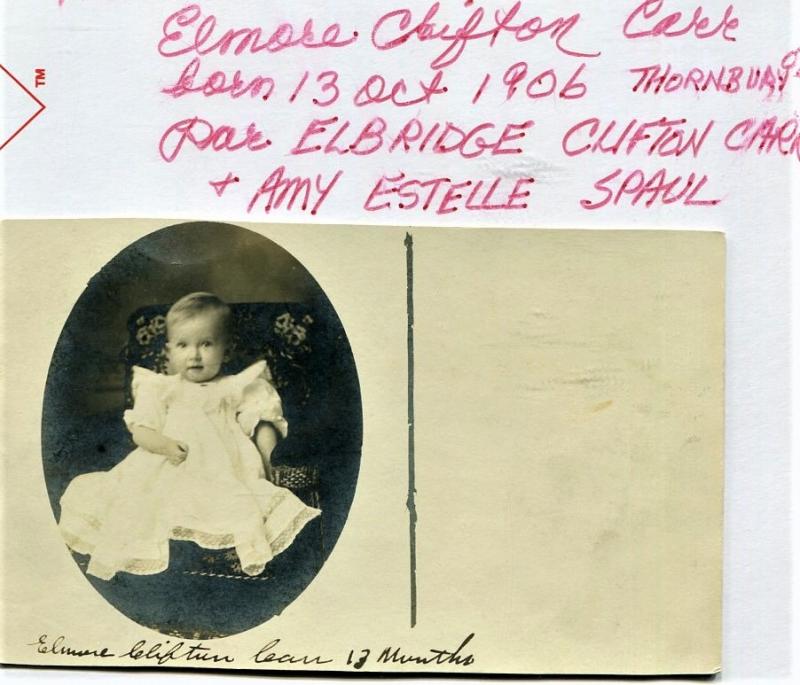 Elmore Clifton Carr
born 13 Oct 1906 THORNBURY
Par ELBRIDGE CLIFTON CARR
+ AMY ESTELLE SPAUL
TM
Elmore Clifton Carr 13 Months